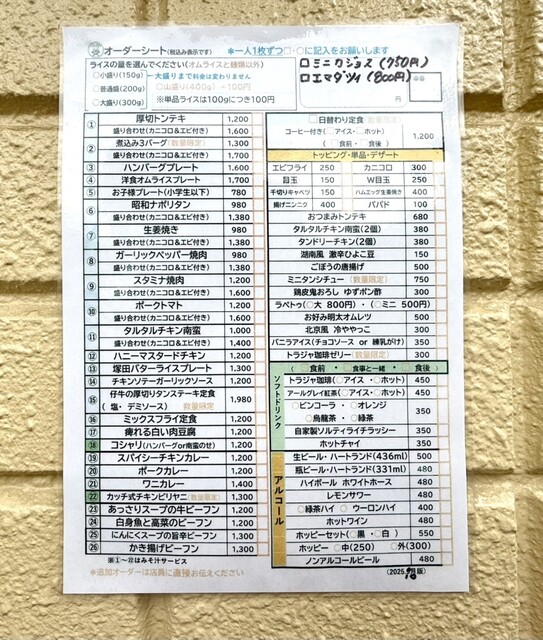 オーダーシート(税込み表示です) *一人1枚ずつ□・○に記入をお願いします
ライスの量を選んでください(オムライスと麺類以外)
○小盛り(150g) ←大盛りまで料金は変わりません
○普通盛(200g) ○山盛り(400g) +100円
○大盛り(300g) ※単品ライスは100gにつき100円
(750円)
(800円)
円
① 厚切トンテキ 1,200
盛り合わせ(カニコロ&エビ付き) 1,600
② 煮込み3バーグ(数量限定) 1,300
盛り合わせ(カニコロ&エビ付き) 1,700
③ ハンバーグプレート 1,600
④ 洋食オムライスプレート 1,700
⑤ お子様プレート(小学生以下) 780
⑥ 昭和ナポリタン 980
盛り合わせ(カニコロ&エビ付き) 1,380
⑦ 生姜焼き 980
盛り合わせ(カニコロ&エビ付き) 1,380
⑧ ガーリックペッパー焼肉 980
盛り合わせ(カニコロ&エビ付き) 1,380
⑨ スタミナ焼肉 1,200
盛り合わせ(カニコロ&エビ付き) 1,600
⑩ ポークトマト 1,200
盛り合わせ(カニコロ&エビ付き) 1,600
⑪ タルタルチキン南蛮 1,000
盛り合わせ(カニコロ&エビ付き) 1,400
⑫ ハニーマスタードチキン 1,200
⑬ 塚田バターライスプレート 1,300
⑭ チキンソテーガーリックソース 1,200
⑮ 仔牛の厚切りタンステーキ定食
(塩・デミソース) 数量限定 1,980
⑯ ミックスフライ定食 1,200
⑰ 痺れる白い肉豆腐 1,200
⑱ コシャリ(ハンバーグor南蛮のせ) 1,200
⑲ スパイシーチキンカレー 1,200
⑳ ポークカレー 1,200
21 ワニカレー 1,400
22 カッチ式チキンビリヤニ(数量限定) 1,300
23 あっさりスープの牛ビーフン 1,200
24 白身魚と高菜のビーフン 1,200
25 にんにくスープの旨辛ビーフン 1,300
26 かき揚げビーフン 1,300
※①~⑰はみそ汁サービス
*追加オーダーは店員に直接お伝えください
□日替わり定食(数量限定)
コーヒー付き(○アイス・○ホット) 1,200
(○食前・○食後)
トッピング・単品・デザート
エビフライ 250 カニコロ 300
目玉 150 W目玉 250
千切りキャベツ 150 ハムエッグ生姜焼き 400
揚げニンニク 400 パパド 100
おつまみトンテキ 680
タルタルチキン南蛮(2個) 380
タンドリーチキン(2個) 380
湖南風 激辛ひよこ豆 150
ごぼうの唐揚げ 500
ミニタンシチュー(数量限定) 750
鶏皮鬼おろし ゆずポン酢 300
ラペトゥ(○大 800円)・(○ミニ 500円)
お好み明太オムレツ 500
北京風 冷ややっこ 300
バニラアイス(チョコソース or 練乳がけ) 350
トラジャ珈琲ゼリー(数量限定) 300
ソフトドリンク
(○食前・○食事と一緒・○食後)
トラジャ珈琲(○アイス・○ホット) 450
アールグレイ紅茶(○アイス・○ホット) 450
○ピンコーラ・○オレンジ
○烏龍茶・○緑茶 350
自家製ソルティライチラッシー 350
ホットチャイ 350
アルコール
生ビール・ハートランド(436ml) 500
瓶ビール・ハートランド(331ml) 480
ハイボール ホワイトホース 480
レモンサワー 480
○緑茶ハイ ○ウーロンハイ 400
ホットワイン 480
ホッピーセット(○黒・○白) 550
ホッピー ○中(250) ○外(300)
ノンアルコールビール 480